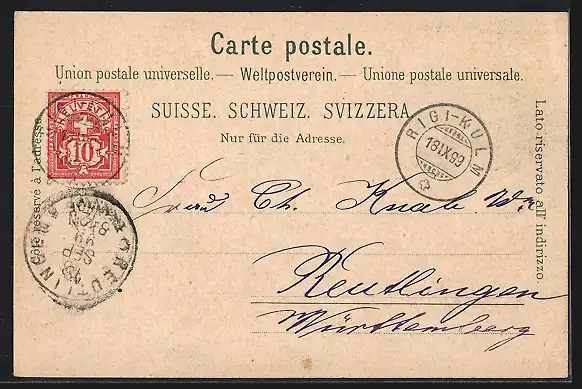 Carte postale.
Union postale universelle. — Weltpostverein. — Unione postale universale.
SUISSE. SCHWEIZ. SVIZZERA.
Nur für die Adresse.
Côté réservé à l'adresse.
Lato riservato all' indirizzo.
HELVETIA
10
RIGI-KULM
18 IX 99
REUTLINGEN
SEP
99
Frau Ch. Knabe
Reutlingen
Württemberg